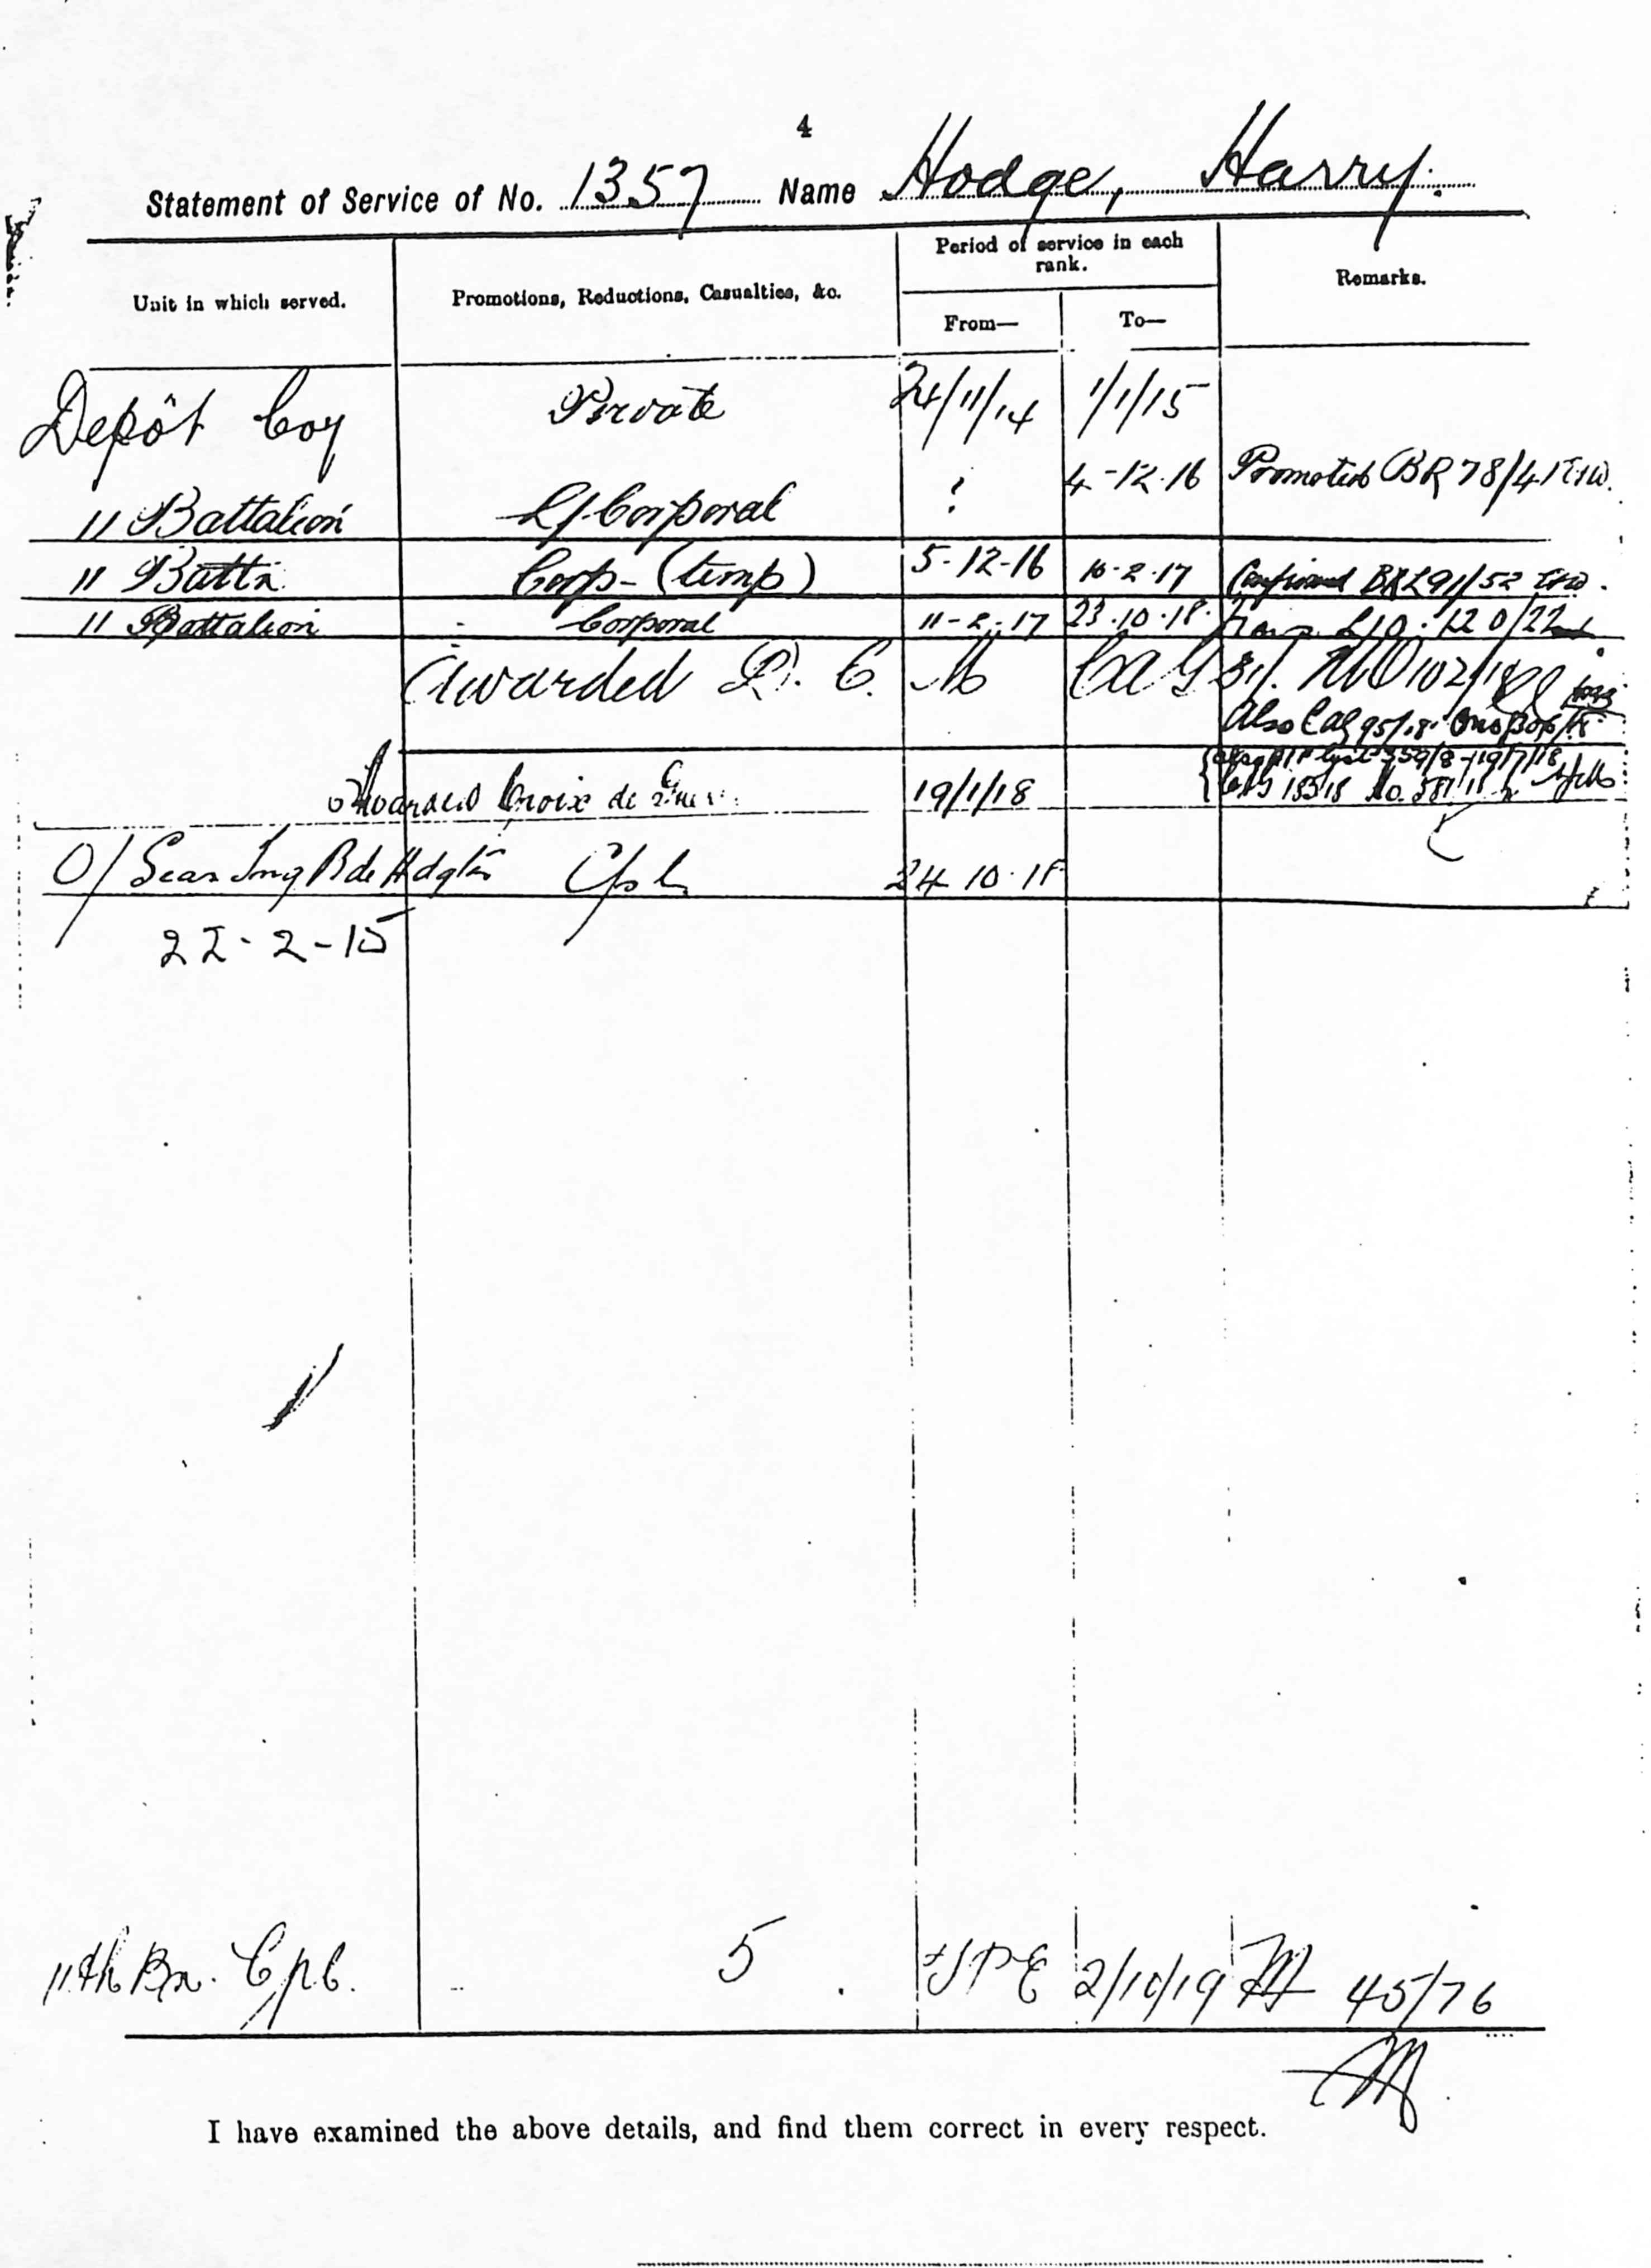 4
Statement of Service of No. 1357 Name Hodge, Harry.
Unit in which served. Promotions, Reductions, Casualties, &c. Period of service in each rank. Remarks.
From— To—
Depôt Coy Private 24/11/14 1/1/15
11 Battalion L/Corporal ? 4-12-16 Promoted BR 78/41
11 Battn Corp- (temp) 5-12-16 10-2-17 Confirmed BRL91/52
11 Battalion Corporal 11-2-17 23.10.18. 120/22
Awarded D. C. M CAG 31/. MO 102/18
Also CAG 95/18
Awarded Croix de 19/1/18 359/8-19/7/18
No. 381
O/Seas Trng Bde Hdqtrs Cpl 24.10.18
22-2-15
11th Bn. Cpl. 5 TPE 2/10/19 45/76
I have examined the above details, and find them correct in every respect.